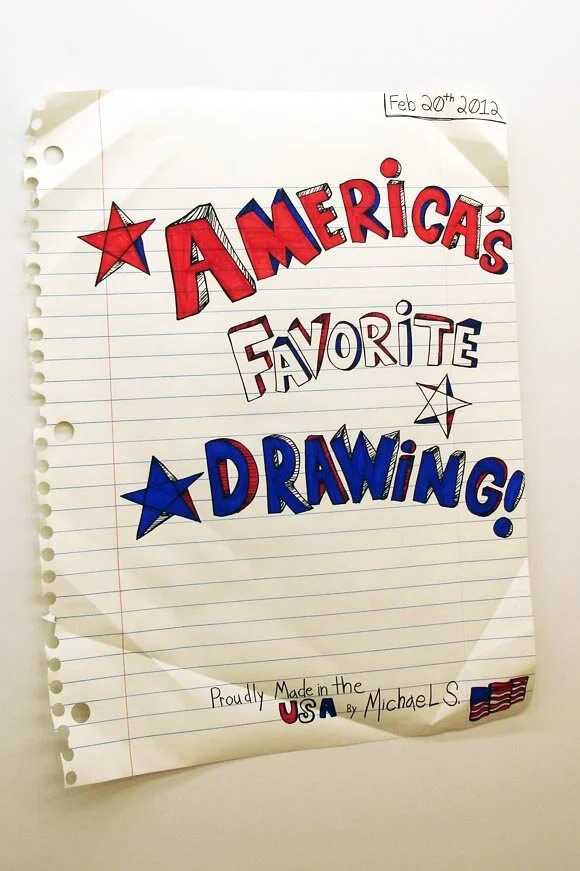 Feb 20th 2012
AMERiCA'S
FAVORiTE
DRAWiNG!
Proudly Made in the
USA By MichaeL S.